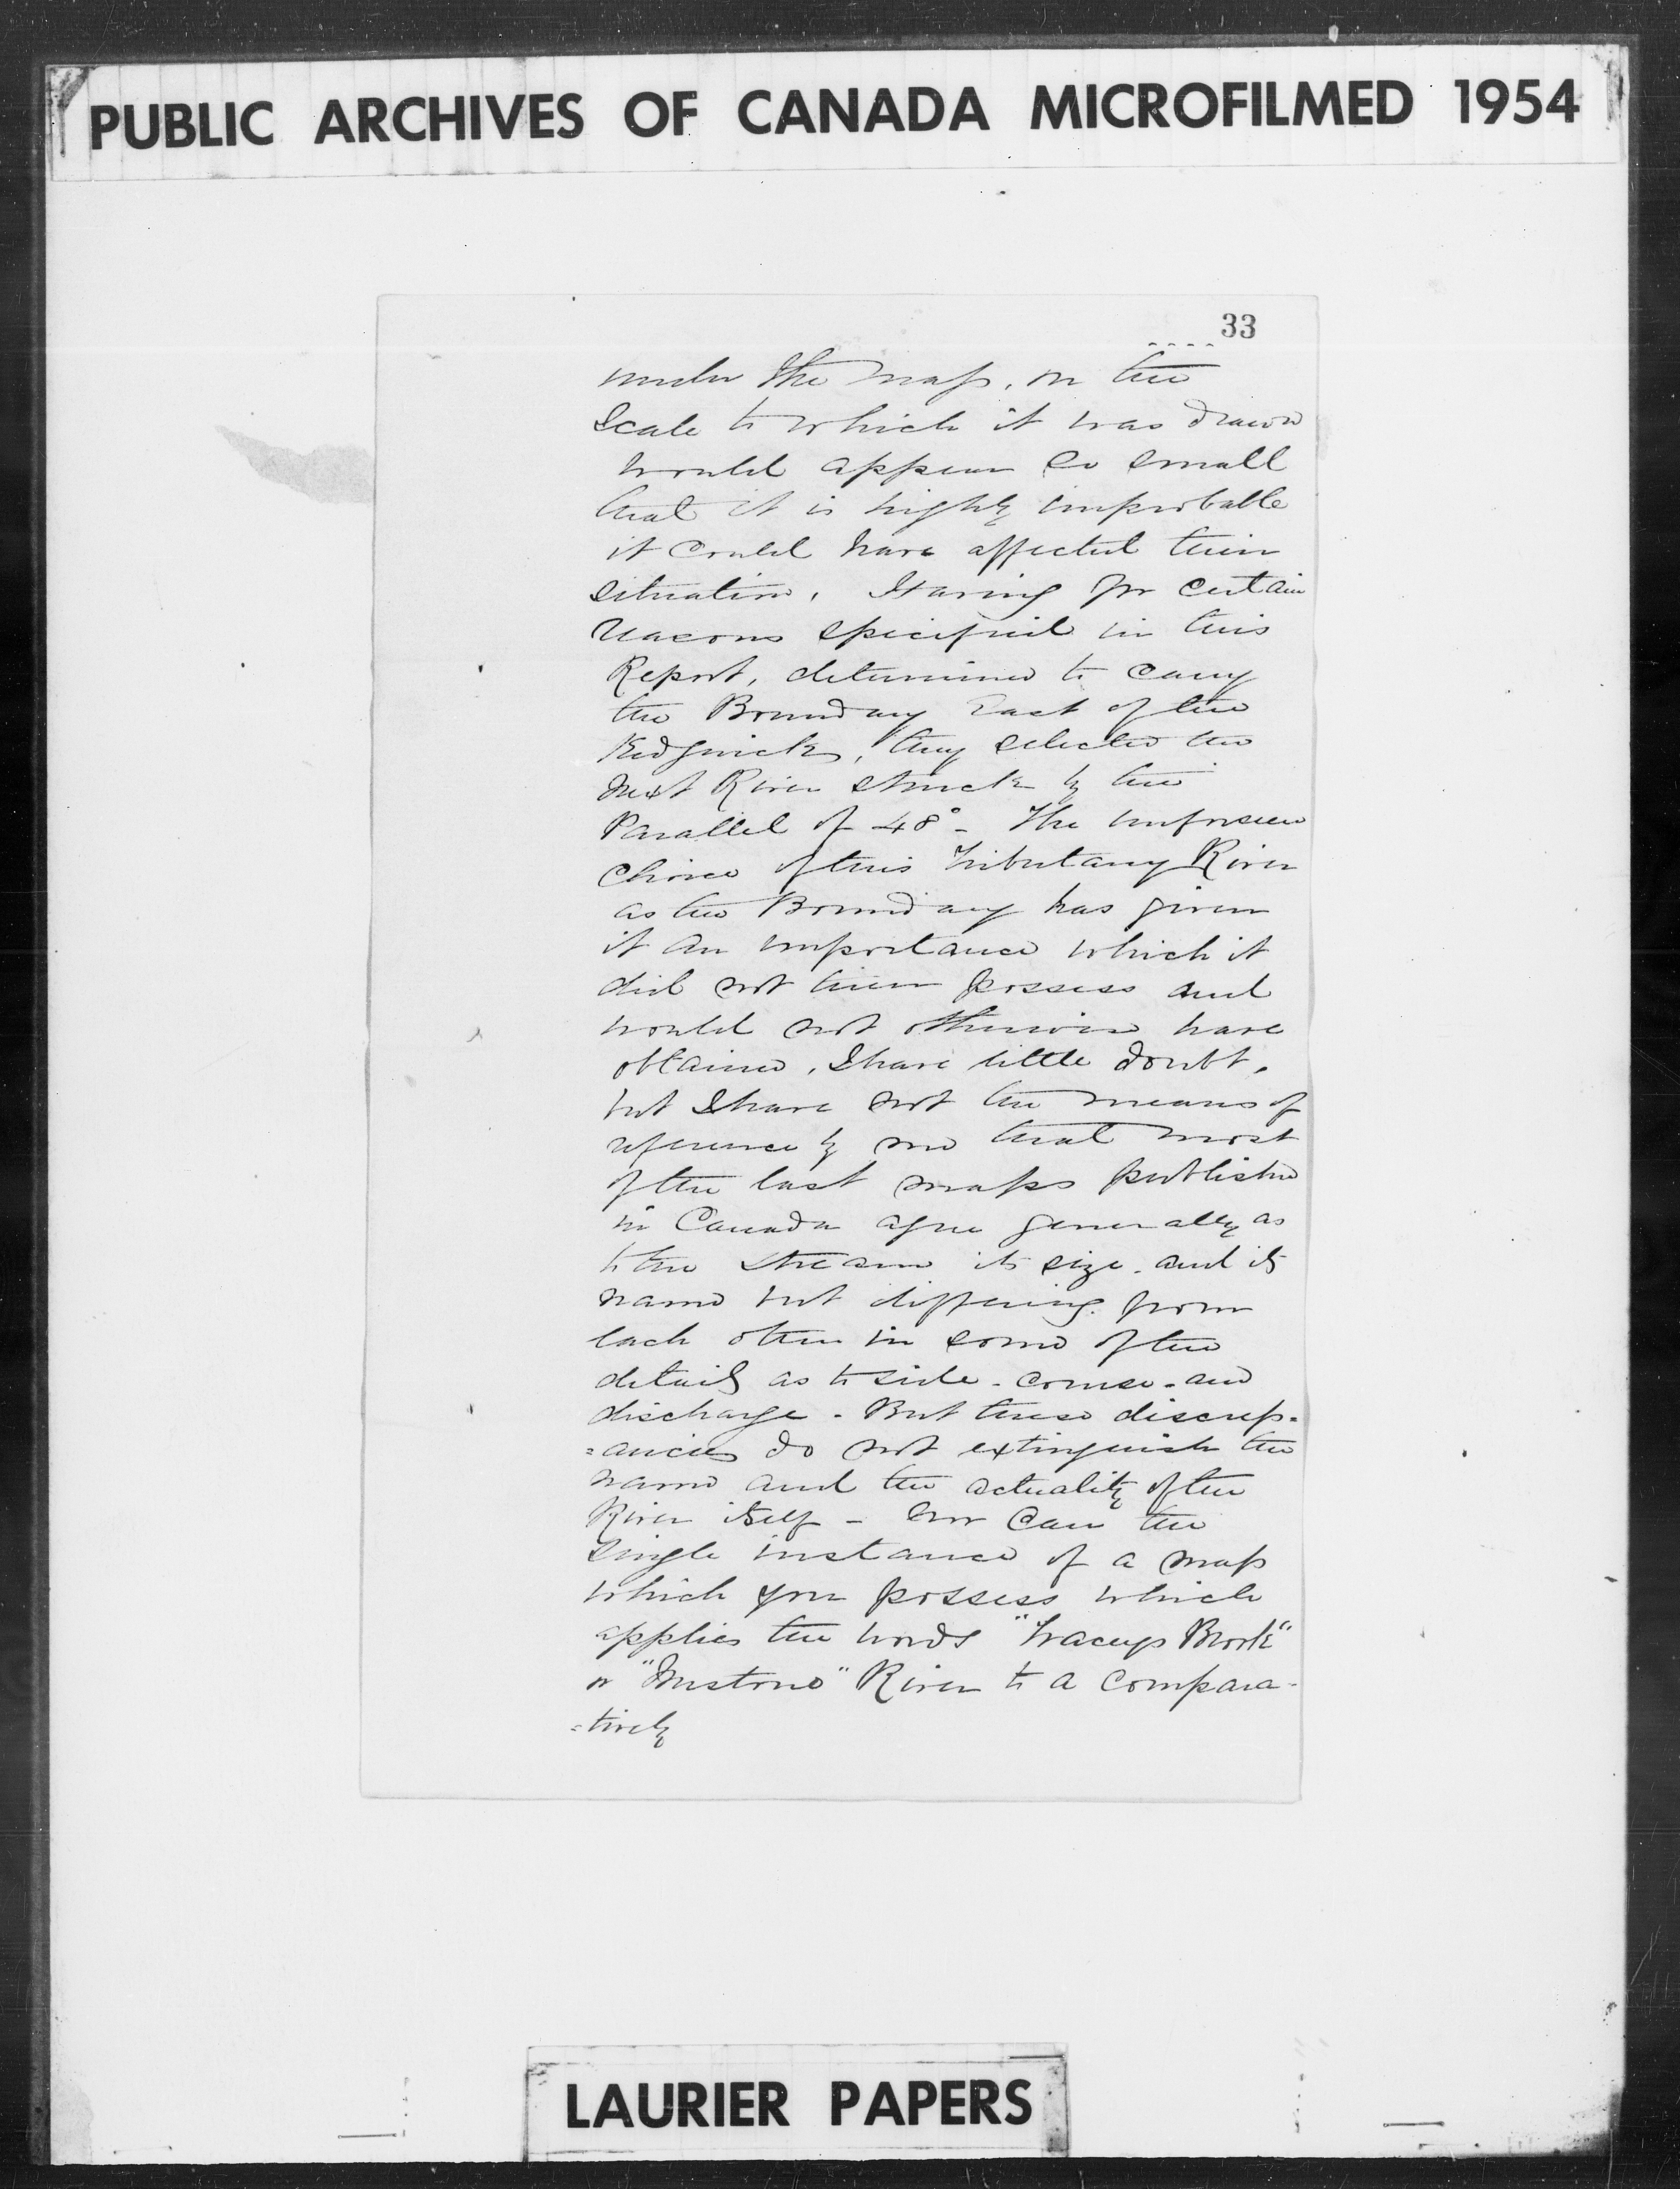 PUBLIC ARCHIVES OF CANADA MICROFILMED 1954
33
under the map, on the
Scale to which it was drawn
would appear so small
that it is highly improbable
it could have affected their
situation. Having for certain
reasons specified in this
Report, determined to carry
the Boundary East of the
Kedgwick, they selected the
next River struck by the
Parallel of 48° - The unforseen
choice of this Tributary River
as the Boundary has given
it an importance which it
did not then possess and
would not otherwise have
obtained. I have little doubt,
but I have not the means of
reference by me that most
of the last maps published
in Canada agree generally as
to the stream its size and its
name but differing from
each other in some of the
details as to side - course - and
discharge - But these discrep=
=ancies do not extinguish the
name and the actuality of the
River itself - nor can the
single instance of a map
which you possess which
applies the words "Traceys Brook"
or "Mistoue" River to a compara-
=tively
LAURIER PAPERS